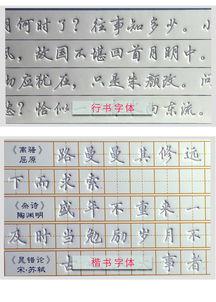 何时了？往事知多少。小
风，故国不堪回首月明中。
应犹在，只是朱颜改。问
愁？恰似一 行书字体 向东流。
《离骚》屈原 路曼曼其修远
下而求索
《杂诗》陶渊明 盛年不重来一
及时当勉励岁月不
《晁错论》宋·苏轼 古 楷书字体 事者